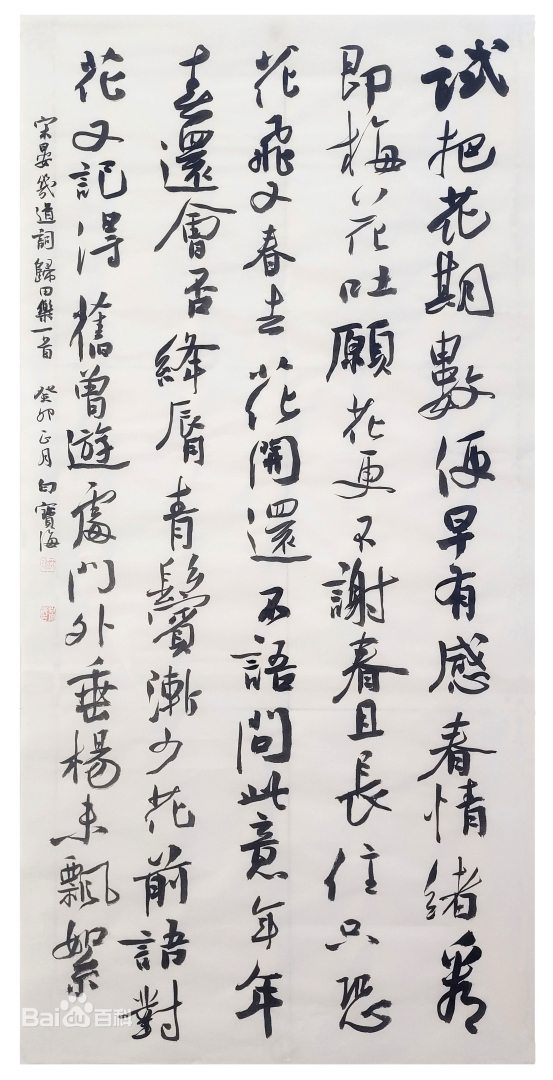 試把花期數便早有感春情緒看
即梅花吐願花更不謝春且長住只恐
花飛又春去花開還不語問此意年年
春還會否絳脣青鬢漸少花前語對
花又記得舊曾遊處門外垂楊未飄絮
宋晏幾道詞歸田樂一首 癸卯正月白寶海
Baidu百科